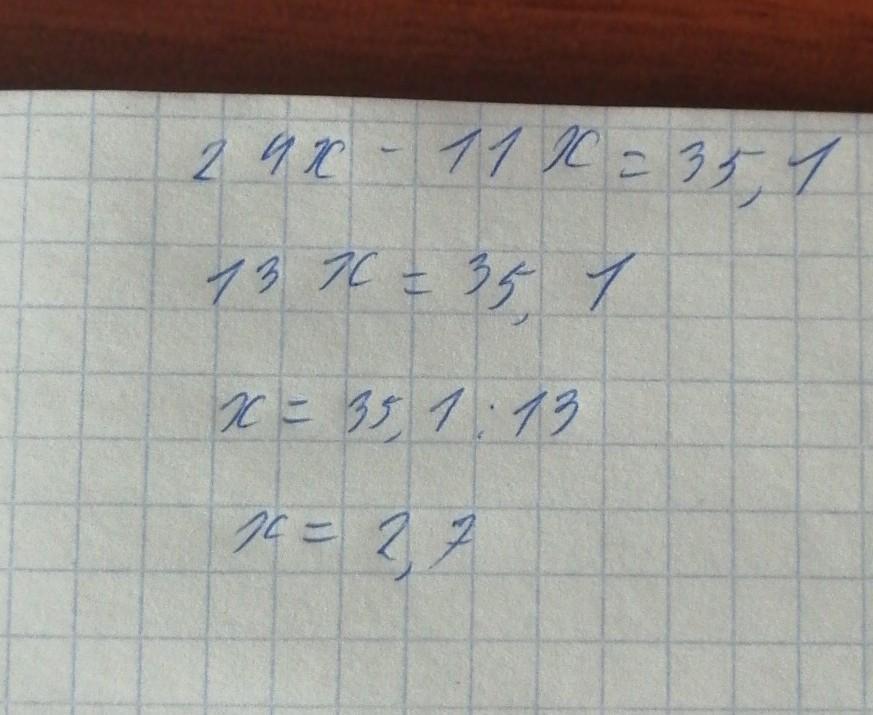 24x - 11x = 35,1
13x = 35,1
x = 35,1 : 13
x = 2,7